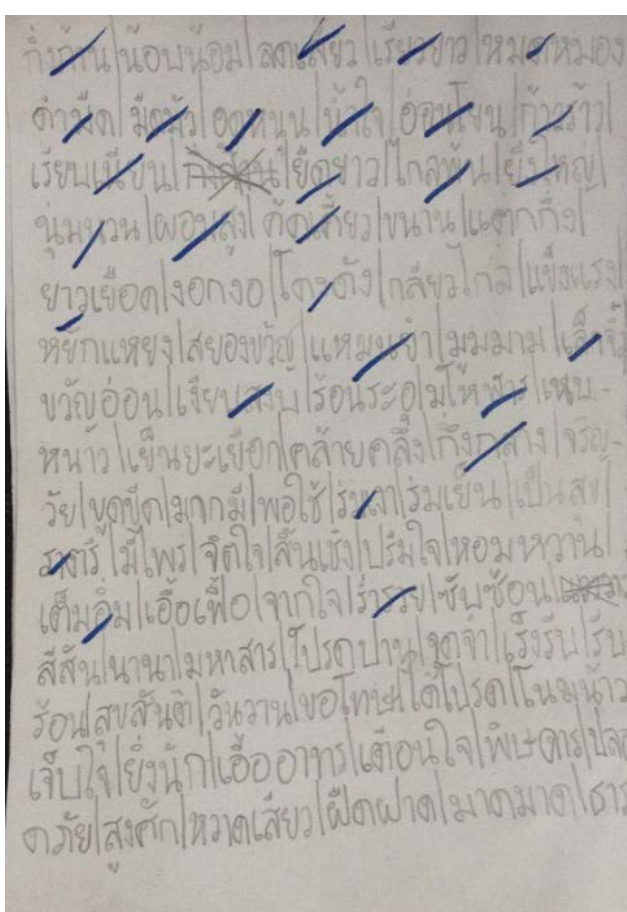 กิ่งก้าน|น้อบน้อม|ลดเลี้ยว|เรียวยาว|หมดหมอง
ดำมืด|มืดมัว|อุดหนุน|น้ำใจ|อ่อนโยน|ก้าวร้าว|
เรียบเนียน|ยืดยาว|ไกลพ้น|ยิ่งใหญ่|
นุ่มนวน|ผอมสูง|คดเคี้ยว|ขนาน|แตกกิ่ง|
ยาวเยือด|งอกงอ|โด่งดัง|กลียวไกล|แข็งแรง|
หยักแหยง|สยองขวัญ|แหม่นยำ|มมมาม|เล็กจิ๋ว
ขวัญอ่อน|เงียบสงบ|ร้อนระอุ|มโหฬาร|เหน็บ-
หนาว|เย็นยะเยือก|คล้ายคลึง|กึ่งกลาง|เจริญ-
วัย|ขุดขีด|มากมี|พอใช้|ร่มเงา|ร่มเย็น|เป็นสุข|
ราตรี|มีไพร|จิตใจ|สิ้นเชิง|ปริ่มใจ|หอมหวาน|
เต็มอิ่ม|เอื้อเฟื้อ|จากใจ|ร่ำรวย|ซับซ้อน|
สีสัน|นานา|มหาสาร|โปรดปาน|จดจำ|เร็งรีบ|รีบ
ร้อน|สุขสันติ|วันวาน|ขอโทษ|ได้โปรด|โนมน้าว
เจ็บใจ|ยิ่งนัก|เอื้ออาทร|เตือนใจ|พิษดาร|ปลอ
ดภัย|สูงศัก|หวาดเสียว|ฝืดฝาด|มาดมาด|ธาร